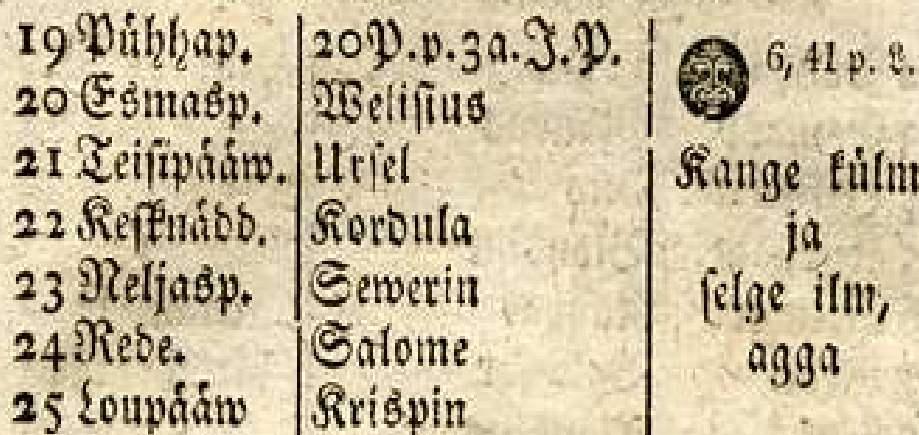 19 Pühhap. 20 P. p. 3a. J. P. 6, 41 p. L.
20 Esmasp. Welisius
21 Teisipääw. Ursel Kange külm
22 Kesknädd. Kordula ja
23 Neljasp. Sewerin selge ilm,
24 Rede. Salome agga
25 Loupääw Krispin